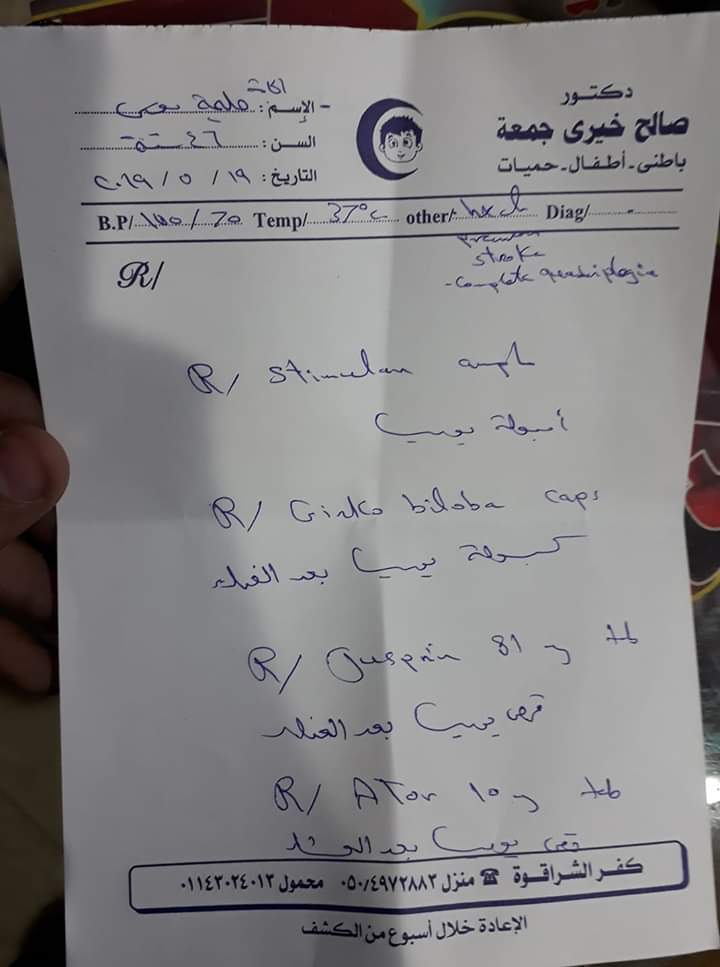 دكتور
صالح خيرى جمعة
باطنى - أطفال - حميات
- الإسم:
السن: ٤٦ سنة
التاريخ: ١٩ / ٥ / ٢٠١٩
B.P/ 100/70 Temp/ 37°c other/ Diag/ -
stroke
- complete quadriplegia
R/
R/ Stimulan amp
أمبولة يوميا
R/ Ginko biloba caps
كبسولة يوميا بعد الغداء
R/ Jusprin 81 tb
قرص يوميا بعد الغداء
R/ ATor 10 tab
قرص يوميا بعد العشاء
كفر الشراقوة ☎ منزل ٠٥٠/٤٩٧٢٨٨٣ محمول ٠١١٤٣٠٢٤٠١٣
الإعادة خلال أسبوع من الكشف